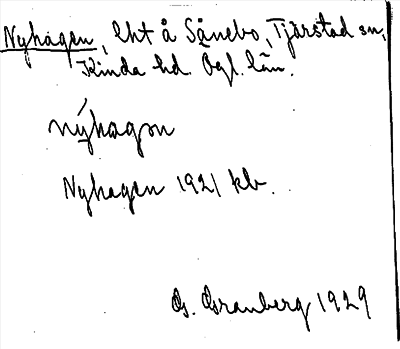 Nyhagen, lht å Sånebo, Tjärstad sn,
Kinda hd. Ögl. län.
nýhagən
Nyhagen 1921 kb.
G. Granberg 1929